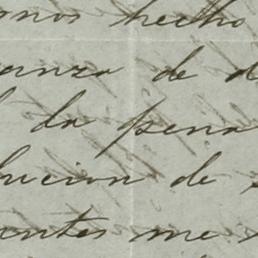 mos hecho
anza de d
da pena
lucion de
antes me